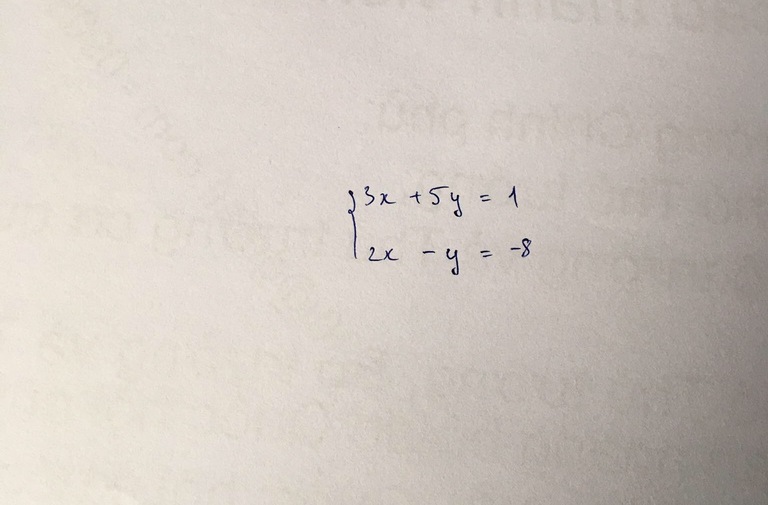 3x + 5y = 1
2x - y = -8